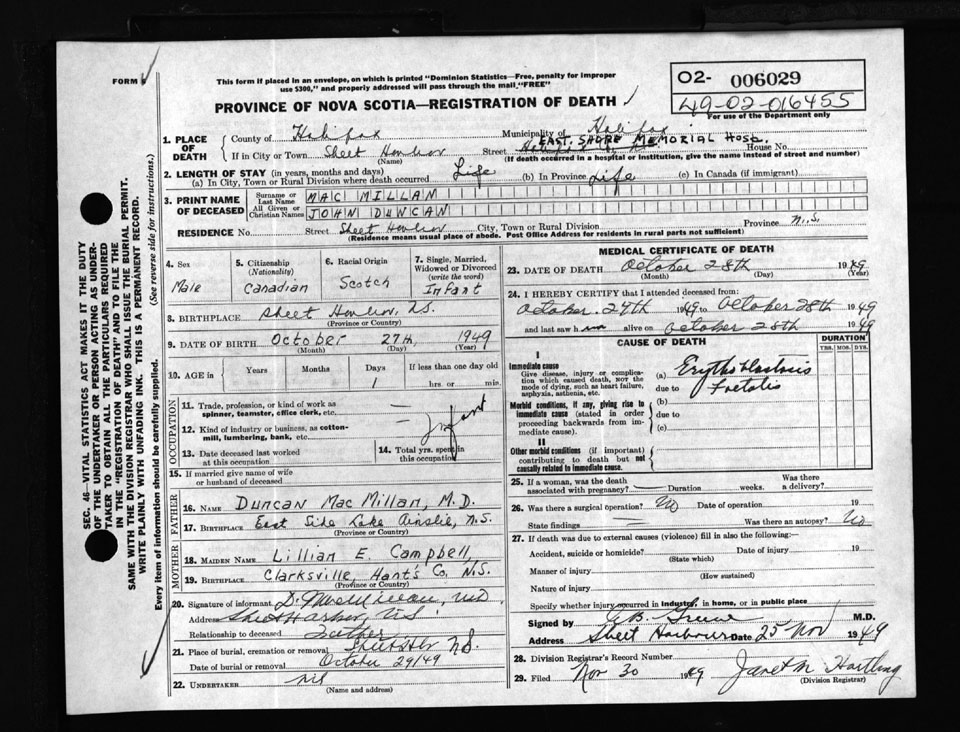 FORM 6
This form if placed in an envelope, on which is printed "Dominion Statistics—Free, penalty for improper
use $300," and properly addressed will pass through the mail "FREE"
O2- 006029
49-02-016455
For use of the Department only
PROVINCE OF NOVA SCOTIA—REGISTRATION OF DEATH
1. PLACE OF DEATH
County of Halifax Municipality of Halifax
EAST. SHORE MEMORIAL HOSP.
If in City or Town Sheet Harbor Street House No.
(Name) (If death occurred in a hospital or institution, give the name instead of street and number)
2. LENGTH OF STAY (in years, months and days)
(a) In City, Town or Rural Division where death occurred Life (b) In Province Life (c) In Canada (if immigrant)
3. PRINT NAME OF DECEASED
Surname or Last Name MAC MILLAN
All Given or Christian Names JOHN DUNCAN
RESIDENCE No. Street Sheet Harbor City, Town or Rural Division Province N.S.
(Residence means usual place of abode. Post Office Address for residents in rural parts not sufficient)
4. Sex Male
5. Citizenship (Nationality) Canadian
6. Racial Origin Scotch
7. Single, Married, Widowed or Divorced (write the word) Infant
8. BIRTHPLACE Sheet Harbor, N.S.
(Province or Country)
9. DATE OF BIRTH October 27th, 1949
(Month) (Day) (Year)
10. AGE in Years Months Days 1 If less than one day old hrs. or min.
OCCUPATION
11. Trade, profession, or kind of work as spinner, teamster, office clerk, etc. —
12. Kind of industry or business, as cotton-mill, lumbering, bank, etc. — Infant
13. Date deceased last worked at this occupation
14. Total yrs. spent in this occupation
15. If married give name of wife or husband of deceased
FATHER
16. NAME Duncan Mac Millan, M.D.
17. BIRTHPLACE East Side Lake Ainslie, N.S.
(Province or Country)
MOTHER
18. MAIDEN NAME Lillian E. Campbell,
19. BIRTHPLACE Clarksville, Hant's Co. N.S.
(Province or Country)
20. Signature of informant D. MacMillan, MD
Address Sheet Harbor, NS
Relationship to deceased Father
21. Place of burial, cremation or removal NS.
Date of burial or removal October 29/49
22. UNDERTAKER nil
(Name and address)
MEDICAL CERTIFICATE OF DEATH
23. DATE OF DEATH October 28th 1949
(Month) (Day) (Year)
24. I HEREBY CERTIFY that I attended deceased from:
October. 27th 1949 to October 28th 1949
and last saw h im alive on October 28th 1949
CAUSE OF DEATH
DURATION
YRS. MOS. DYS.
I
Immediate cause
Give disease, injury or complication which caused death, not the mode of dying, such as heart failure, asphyxia, asthenia, etc.
(a) Erythroblastosis
due to Foetalis
Morbid conditions, if any, giving rise to immediate cause (stated in order proceeding backwards from immediate cause).
(b)
due to
(c)
II
Other morbid conditions (if important) contributing to death but not causally related to immediate cause.
25. If a woman, was the death associated with pregnancy? — Duration weeks. Was there a delivery?
26. Was there a surgical operation? No Date of operation 19
State findings — Was there an autopsy? No
27. If death was due to external causes (violence) fill in also the following:—
Accident, suicide or homicide? Date of injury 19
(State which)
Manner of injury
(How sustained)
Nature of injury
Specify whether injury occurred in industry, in home, or in public place
Signed by M.D.
Address Sheet Harbour Date 25 Nov 1949
28. Division Registrar's Record Number
29. Filed Nov 30 1949 Janet M Hartling
(Division Registrar)
SEC. 46—VITAL STATISTICS ACT MAKES IT THE DUTY
OF THE UNDERTAKER OR PERSON ACTING AS UNDER-
TAKER TO OBTAIN ALL THE PARTICULARS REQUIRED
IN THE "REGISTRATION OF DEATH" AND TO FILE THE
SAME WITH THE DIVISION REGISTRAR WHO SHALL ISSUE THE BURIAL PERMIT.
WRITE PLAINLY WITH UNFADING INK. THIS IS A PERMANENT RECORD.
Every item of information should be carefully supplied. (See reverse side for instructions.)